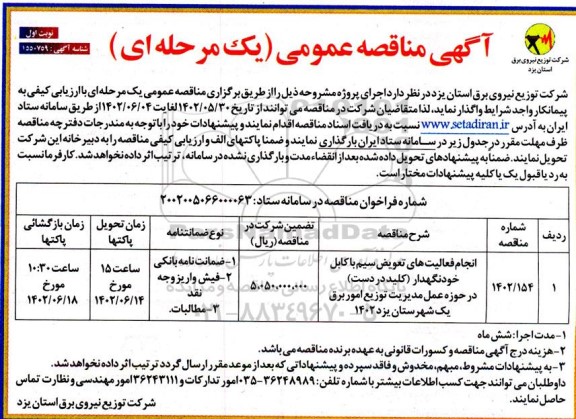 نوبت اول
شناسه آگهی: ۱۵۵۰۷۵۹
آگهی مناقصه عمومی (یک مرحله ای)
شرکت توزیع نیروی برق
استان یزد
شرکت توزیع نیروی برق استان یزد در نظر دارد اجرای پروژه مشروحه ذیل را از طریق برگزاری مناقصه عمومی یک مرحله ای با ارزیابی کیفی به
پیمانکار واجد شرایط واگذار نماید. لذا متقاضیان شرکت در مناقصه می توانند از تاریخ ۱۴۰۲/۰۵/۳۰ لغایت ۱۴۰۲/۰۶/۰۴ از طریق سامانه ستاد
ایران به آدرس www.setadiran.ir نسبت به دریافت اسناد مناقصه اقدام نمایند و پیشنهادات خود را با توجه به مندرجات دفترچه مناقصه
ظرف مهلت مقرر در جدول زیر در سامانه ستاد ایران بارگذاری نمایند و ضمنا پاکتهای الف و ارزیابی کیفی مناقصه را به دبیرخانه این شرکت
تحویل نمایند. ضمنا به پیشنهادهای تحویل داده شده بعد از انقضاء مدت و بارگذاری نشده در سامانه، ترتیب اثر داده نخواهد شد. کارفرما نسبت
به رد یا قبول یک یا کلیه پیشنهادات مختار است.
شماره فراخوان مناقصه در سامانه ستاد: ۲۰۰۲۰۰۵۰۶۶۰۰۰۰۶۳
ردیف شماره مناقصه شرح مناقصه تضمین شرکت در مناقصه (ریال) نوع ضمانتنامه زمان تحویل پاکتها زمان بازگشائی پاکتها
۱ ۱۴۰۲/۱۵۴ انجام فعالیت های تعویض سیم با کابل
خودنگهدار (کلید در دست)
در حوزه عمل مدیریت توزیع امور برق
یک شهرستان یزد ۱۴۰۲
۵.۰۵۰.۰۰۰.۰۰۰
۱- ضمانت نامه بانکی
۲- فیش واریز وجه
نقد
۳- مطالبات.
ساعت ۱۵
مورخ
۱۴۰۲/۰۶/۱۴
ساعت ۱۰:۳۰
مورخ
۱۴۰۲/۰۶/۱۸
۱- مدت اجرا: شش ماه
۲- هزینه درج آگهی مناقصه و کسورات قانونی به عهده برنده مناقصه می باشد.
۳- به پیشنهادات مشروط، مبهم، مخدوش و فاقد سپرده و پیشنهاداتی که بعد از موعد مقرر ارسال گردد ترتیب اثر داده نخواهد شد.
داوطلبان می توانند جهت کسب اطلاعات بیشتر با شماره تلفن: ۳۶۲۴۸۹۸۹-۰۳۵ امور تدارکات و ۳۶۲۴۳۱۱۱ امور مهندسی و نظارت تماس
حاصل نمایند.
شرکت توزیع نیروی برق استان یزد
۰۲۱-۸۸۳۴۹۶۷۰-۵